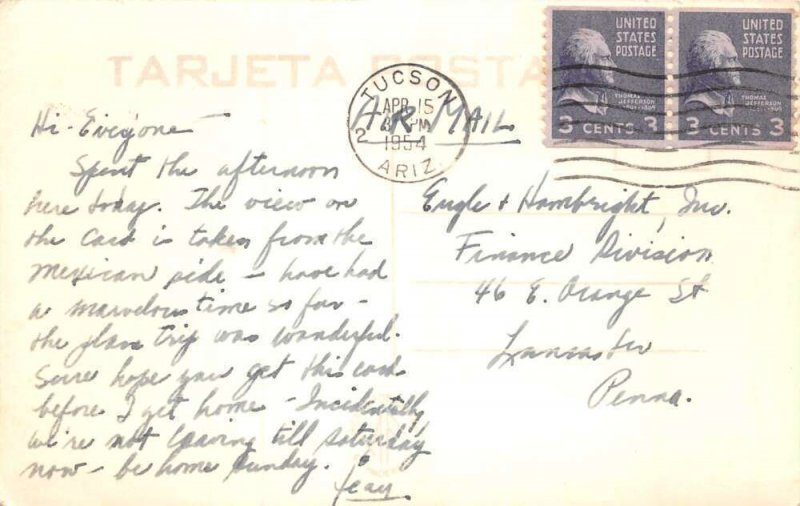 TARJETA POSTAL
TUCSON
APR 15
PM
1954
ARIZ.
2
AIR MAIL
UNITED
STATES
POSTAGE
THOMAS
JEFFERSON
1801-1809
3 CENTS 3
UNITED
STATES
POSTAGE
THOMAS
JEFFERSON
1801-1809
3 CENTS 3
Hi Everyone
Spent the afternoon
here today. The view on
the card is taken from the
Mexican side - have had
a marvelous time so far -
the plane trip was wonderful.
Sure hope you get this card
before I get home - Incidentally,
we're not leaving till Saturday
now - be home Sunday.
Engle & Hambright, Inc.
Finance Division
46 E. Orange St
Lancaster
Penna.